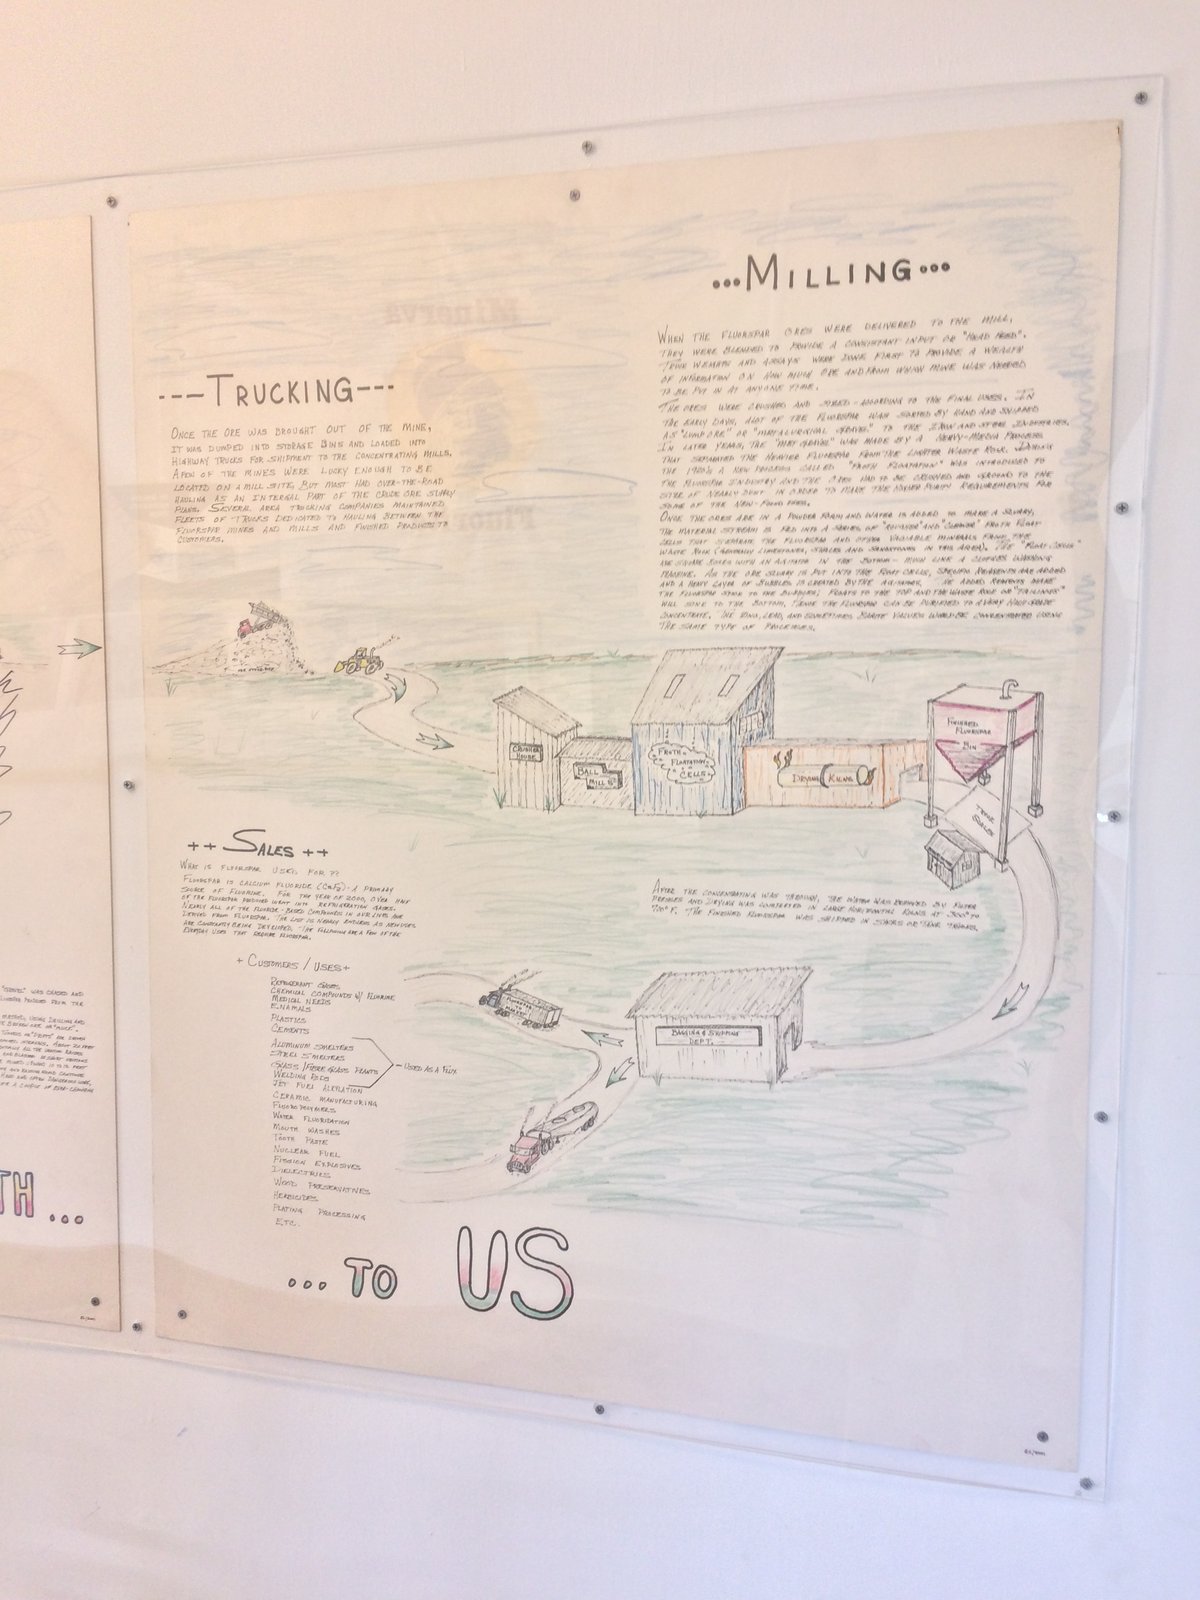 ---TRUCKING---
ONCE THE ORE WAS BROUGHT OUT OF THE MINE,
IT WAS DUMPED INTO STORAGE BINS AND LOADED INTO
HIGHWAY TRUCKS FOR SHIPMENT TO THE CONCENTRATING MILLS.
A FEW OF THE MINES WERE LUCKY ENOUGH TO BE
LOCATED ON A MILL SITE, BUT MOST HAD OVER-THE-ROAD
HAULING AS AN INTERGAL PART OF THE CRUDE ORE SUPPLY
PLANS. SEVERAL AREA TRUCKING COMPANIES MAINTAINED
FLEETS OF TRUCKS DEDICATED TO HAULING BETWEEN THE
FLUORSPAR MINES AND MILLS AND FINISHED PRODUCTS TO
CUSTOMERS.
...MILLING...
WHEN THE FLUORSPAR ORES WERE DELIVERED TO THE MILL,
THEY WERE BLENDED TO PROVIDE A CONSISTANT INPUT OR "HEAD FEED".
TRUCK WEIGHTS AND ASSAYS WERE DONE FIRST TO PROVIDE A WEALTH
OF INFORMATION ON HOW MUCH ORE AND FROM WHICH MINE WAS NEEDED
TO BE PUT IN AT ANYONE TIME.
THE ORES WERE CRUSHED AND SIZED - ACCORDING TO THE FINAL USES. IN
THE EARLY DAYS, ALOT OF THE FLUORSPAR WAS SORTED BY HAND AND SHIPPED
AS "LUMP ORE" OR "METALLURGICAL GRAVEL" TO THE IRON AND STEEL INDUSTRIES.
IN LATER YEARS, THE "MET GRAVEL" WAS MADE BY A HEAVY-MEDIA PROCESS
THAT SEPARATED THE HEAVIER FLUORSPAR FROM THE LIGHTER WASTE ROCK. DURING
THE 1920'S A NEW PROCESS CALLED "FROTH FLOATATION" WAS INTRODUCED TO
THE FLUORSPAR INDUSTRY AND THE ORES HAD TO BE CRUSHED AND GROUND TO THE
SIZE OF NEARLY DUST IN ORDER TO MAKE THE HIGHER PURITY REQUIREMENTS FOR
SOME OF THE NEW-FOUND USES.
ONCE THE ORES ARE IN A POWDER FORM AND WATER IS ADDED TO MAKE A SLURRY,
THE MATERIAL STREAM IS FED INTO A SERIES OF "ROUGHER" AND "CLEANER" FROTH FLOAT
CELLS THAT SEPARATE THE FLUORSPAR AND OTHER VALUABLE MINERALS FROM THE
WASTE ROCK (GENERALLY LIMESTONES, SHALES AND SANDSTONES IN THIS AREA). THE "FLOAT CELLS"
ARE SQUARE BOXES WITH AN AGITATOR IN THE BOTTOM - MUCH LIKE A CLOTHES WASHING
MACHINE. AS THE ORE SLURRY IS PUT INTO THE FLOAT CELLS, SPECIFIC REAGENTS ARE ADDED
AND A HEAVY LAYER OF BUBBLES IS CREATED BY THE AGITATOR. THE ADDED REAGENTS MAKE
THE FLUORSPAR STICK TO THE BUBBLES, FLOATS TO THE TOP AND THE WASTE ROCK OR "TAILINGS"
WILL SINK TO THE BOTTOM. HENCE THE FLUORSPAR CAN BE PURIFIED TO A VERY HIGH GRADE
CONCENTRATE. THE ZINC, LEAD, AND SOMETIMES BARITE VALUES WOULD BE CONCENTRATED USING
THE SAME TYPE OF PROCESSES.
CRUSHER
HOUSE
BALL
MILL
FROTH
FLOATATION
CELLS
DRYING KILNS
FINISHED
FLUORSPAR
BIN
TRUCK
SCALES
++ SALES ++
WHAT IS FLUORSPAR USED FOR??
FLUORSPAR IS CALCIUM FLUORIDE (CaF2) - A PRIMARY
SOURCE OF FLUORINE. FOR THE YEAR OF 2000, OVER HALF
OF THE FLUORSPAR PRODUCED WENT INTO REFRIGERATION GASES.
NEARLY ALL OF THE FLUORIDE-BASED COMPOUNDS IN OUR LIVES ARE
DERIVED FROM FLUORSPAR. THE LIST IS NEARLY ENDLESS AS NEW USES
ARE CONSTANTLY BEING DEVELOPED. THE FOLLOWING ARE A FEW OF THE
EVERYDAY USES THAT REQUIRE FLUORSPAR.
AFTER THE CONCENTRATING WAS THROUGH, THE WATER WAS REMOVED BY FILTER
PRESSES AND DRYING WAS COMPLETED IN LARGE HORIZONTAL KILNS AT 300° TO
700° F. THE FINISHED FLUORSPAR WAS SHIPPED IN SACKS OR TANK TRUCKS.
+ CUSTOMERS / USES +
REFRIGERANT GASES
CHEMICAL COMPOUNDS W/ FLUORINE
MEDICAL NEEDS
ENAMALS
PLASTICS
CEMENTS
ALUMINUM SMELTERS
STEEL SMELTERS
GLASS / FIBERGLASS PLANTS - USED AS A FLUX
WELDING RODS
JET FUEL ALKLATION
CERAMIC MANUFACTURING
FLUOROPOLYMERS
WATER FLUORIDATION
MOUTH WASHES
TOOTH PASTE
NUCLEAR FUEL
FISSION EXPLOSIVES
DIELECTRICS
WOOD PRESERVATIVES
HERBICIDES
PLATING PROCESSING
ETC.
FLUORSPAR
TO
MARKET
BAGGING & SHIPPING
DEPT.
TH ...
... TO US